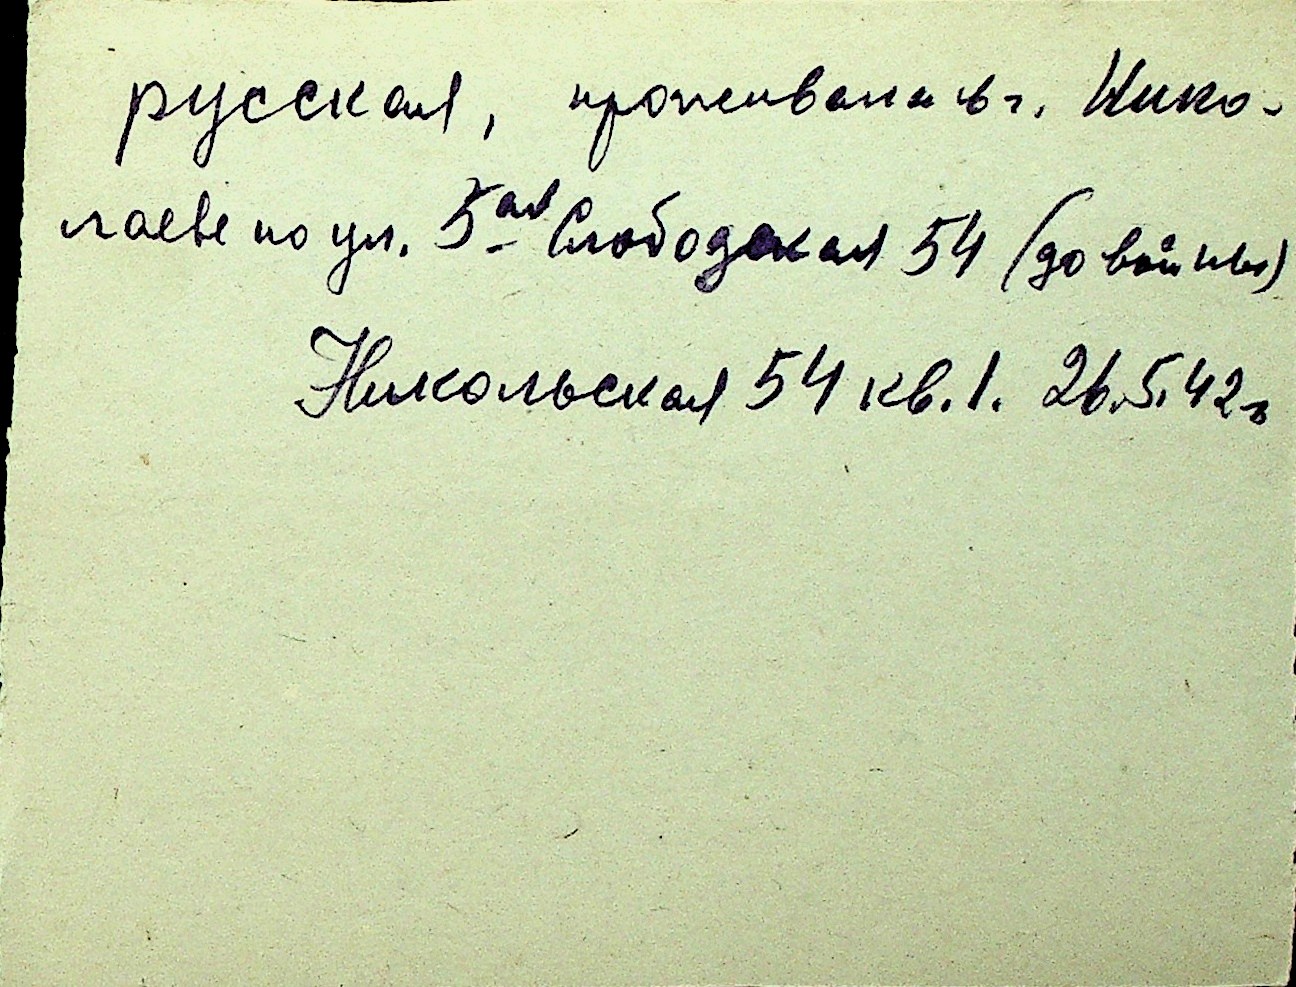 русская, проживала в г. Нико-
лаеве по ул. 5ая Слободская 54 (до войны)
Никольская 54 кв. 1. 26.5.42 г